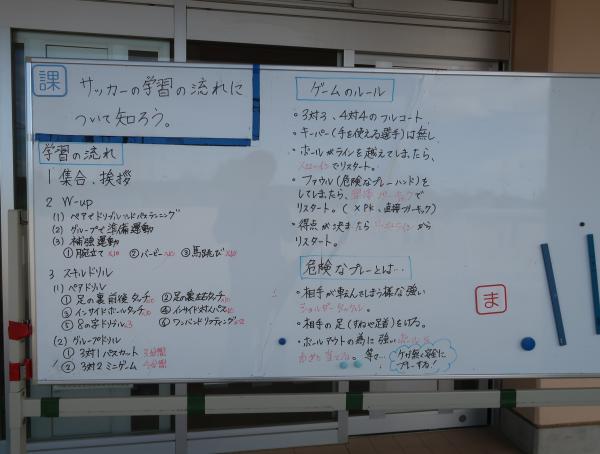 課 サッカーの学習の流れに
ついて知ろう。
学習の流れ
1 集合、挨拶
2 W-up
(1) ペアでドリブル
(2) グループで準備運動
(3) 補強運動
①腕立て×10 ②バーピー×10 ③馬跳び×10
3 スキルドリル
(1) ペアドリル
① 足の裏前後タッチ ② 足の裏左右タッチ
③ インサイドボールタッチ ④ インサイド対人パス
⑤ 8の字ドリブル×3 ⑥ ワンバンドリフティング
(2) グループドリル
① 3対1 パスカット 3分間
② 3対2 ミニゲーム
ゲームのルール
・3対3、4対4のフルコート
・キーパー(手を使える選手)は無し
・ボールがラインを越えてしまったら、
でリスタート。
・ファウル(危険なプレー・ハンド)を
してしまったら、間接フリーキックで
リスタート。(×PK、直接フリーキック)
・得点が決まったら から
リスタート。
危険なプレーとは…
・相手が転んでしまう様な強い
ショルダータックル。
・相手の足(すねや足首)をける。
・ボールアウトの為に強いボールを
わざと当てる。等々…
ケガ無く安全に
プレーする!
ま